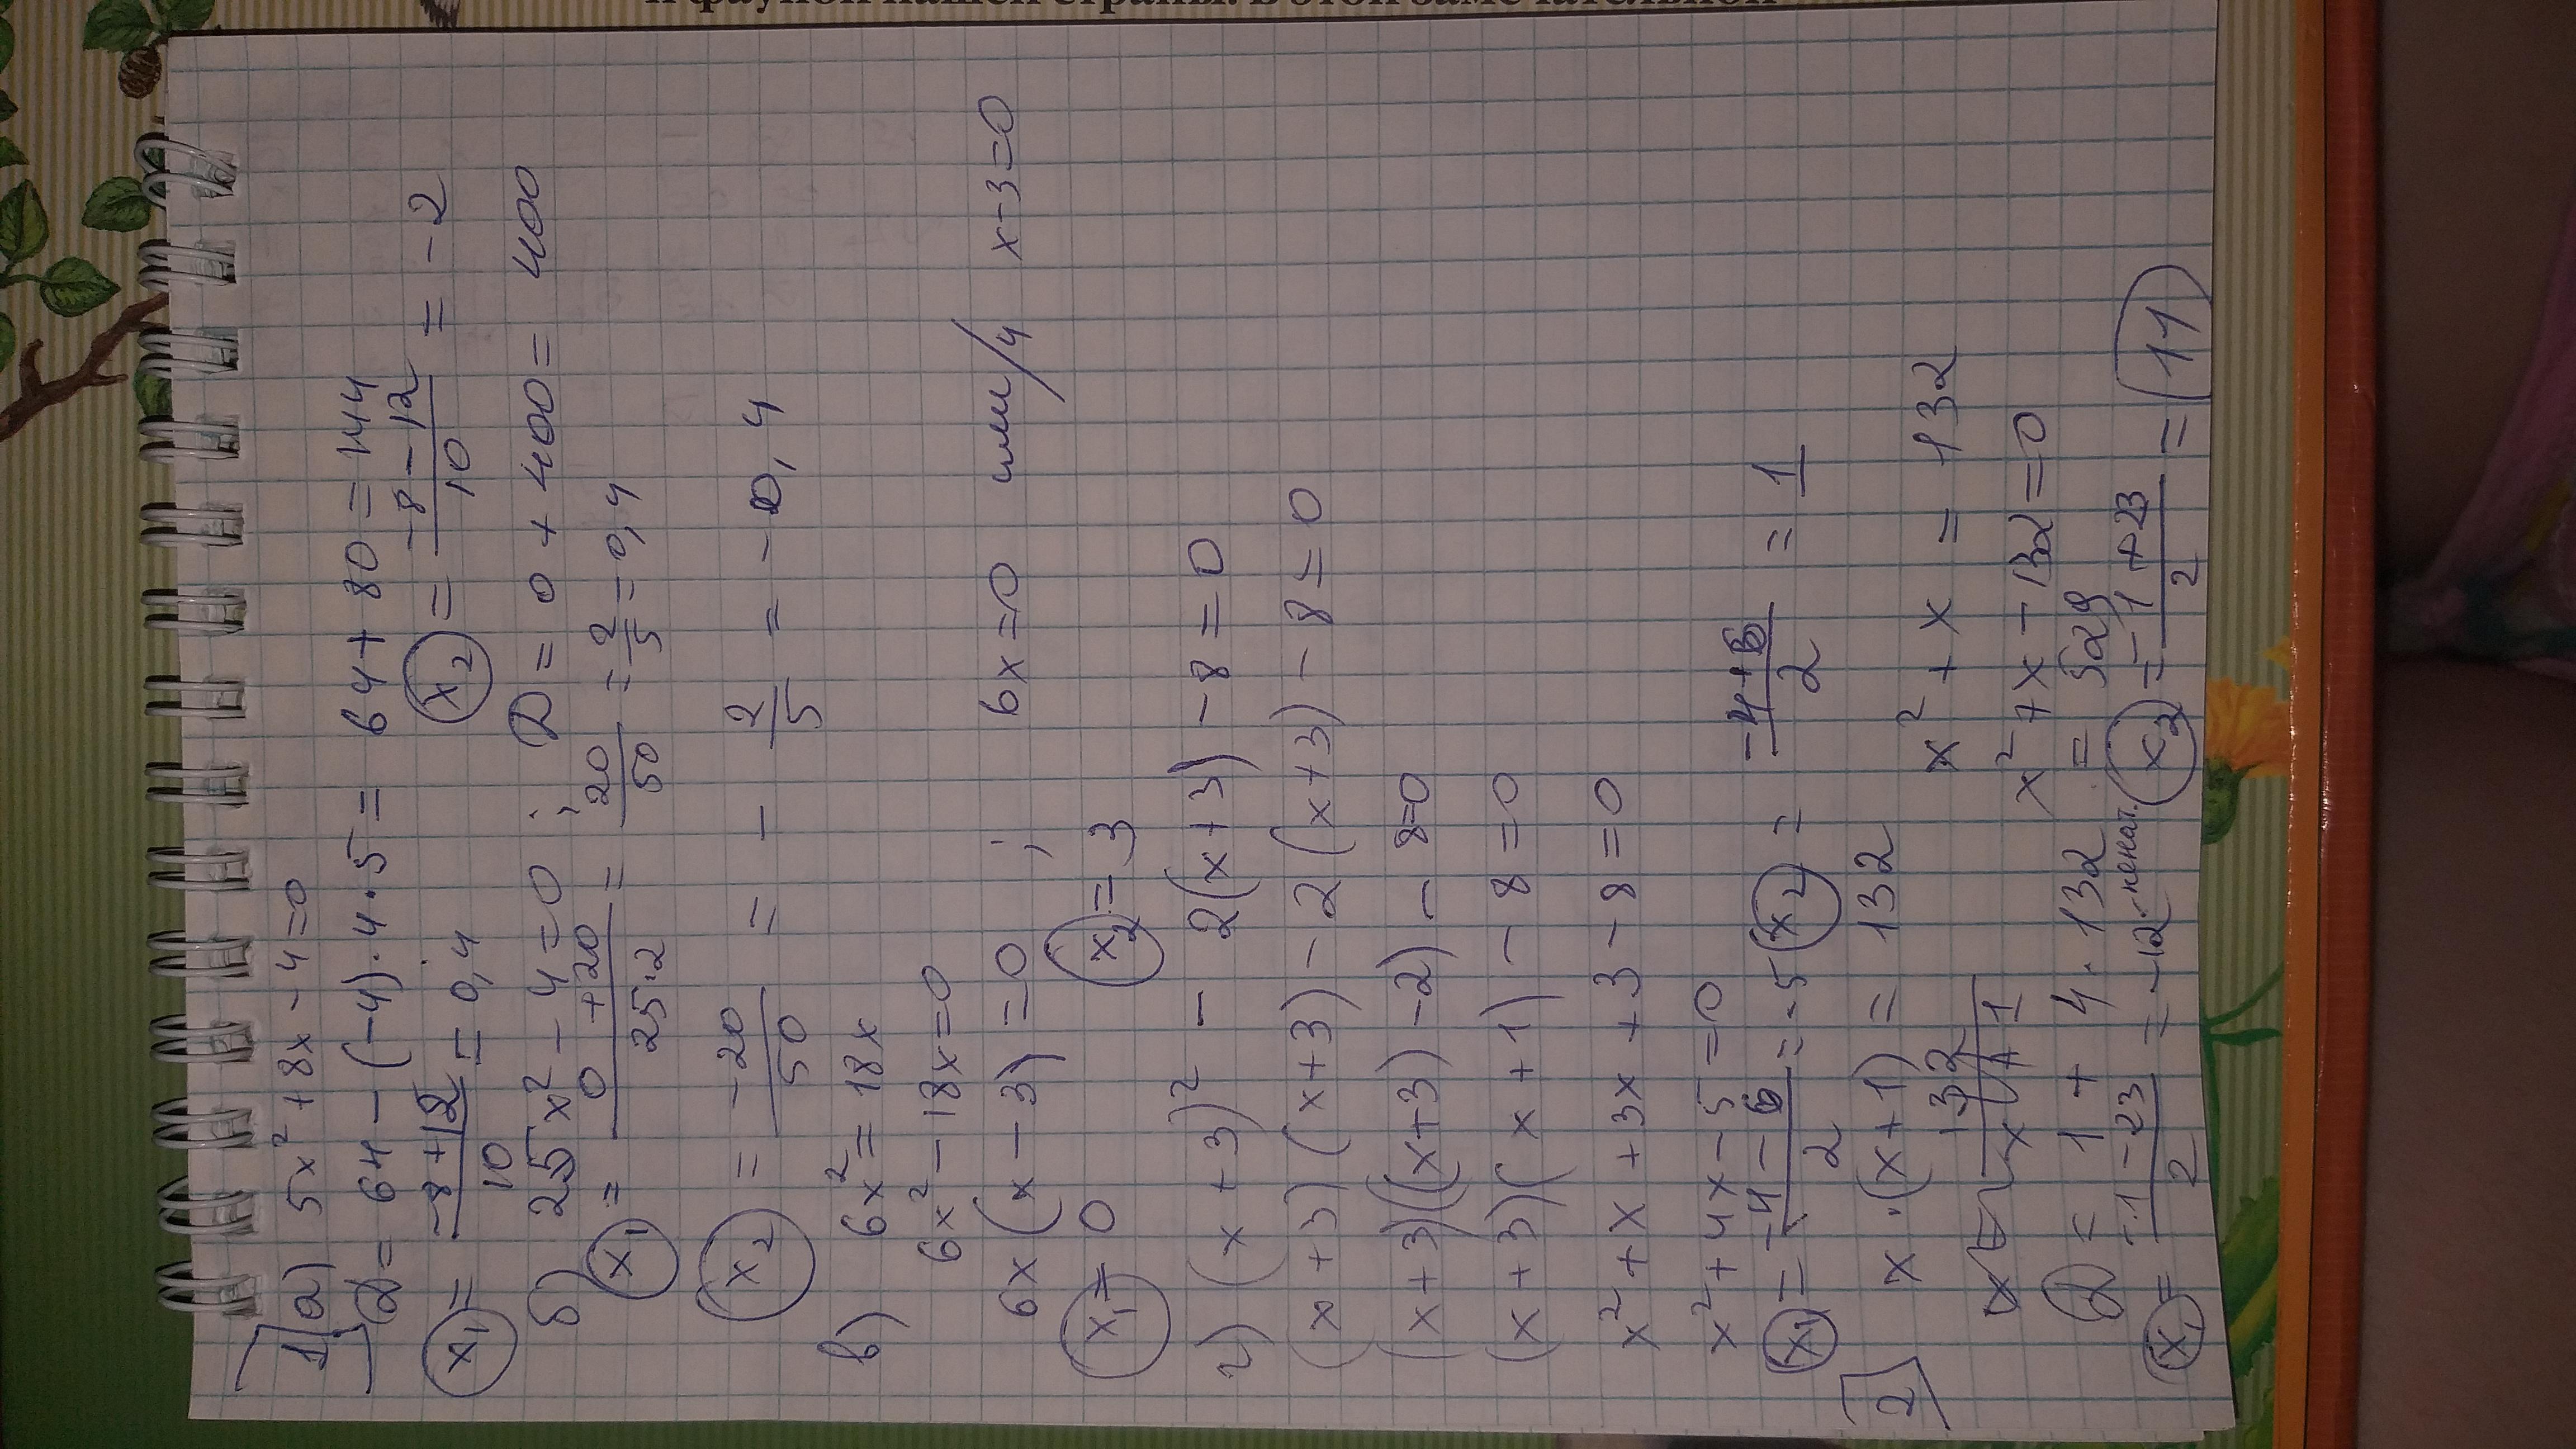 и фауной нашей страны. В этой замечательной
1 а) 5x² + 8x - 4 = 0
D = 64 - (-4) · 4 · 5 = 64 + 80 = 144
x₁ = (-8 + 12)/10 = 0,4 ; x₂ = (-8 - 12)/10 = -2
б) 25x² - 4 = 0 ; D = 0 + 400 = 400
x₁ = (0 + 20)/(25·2) = 20/50 = 2/5 = 0,4
x₂ = -20/50 = - 2/5 = -0,4
в) 6x² = 18x
6x² - 18x = 0
6x(x - 3) = 0 ; 6x = 0 или/и x - 3 = 0
x₁ = 0 x₂ = 3
г) (x + 3)² - 2(x + 3) - 8 = 0
(x + 3)(x + 3) - 2(x + 3) - 8 = 0
(x + 3)((x + 3) - 2) - 8 = 0
(x + 3)(x + 1) - 8 = 0
x² + x + 3x + 3 - 8 = 0
x² + 4x - 5 = 0
x₁ = (-4 - 6)/2 = -5 x₂ = (-4 + 6)/2 = 1
2 x · (x + 1) = 132 x² + x = 132
132/(x + 1) x² + x - 132 = 0
D = 1 + 4 · 132 = 529
x₁ = (-1 - 23)/2 = -12 - ненат. x₂ = (-1 + 23)/2 = 11